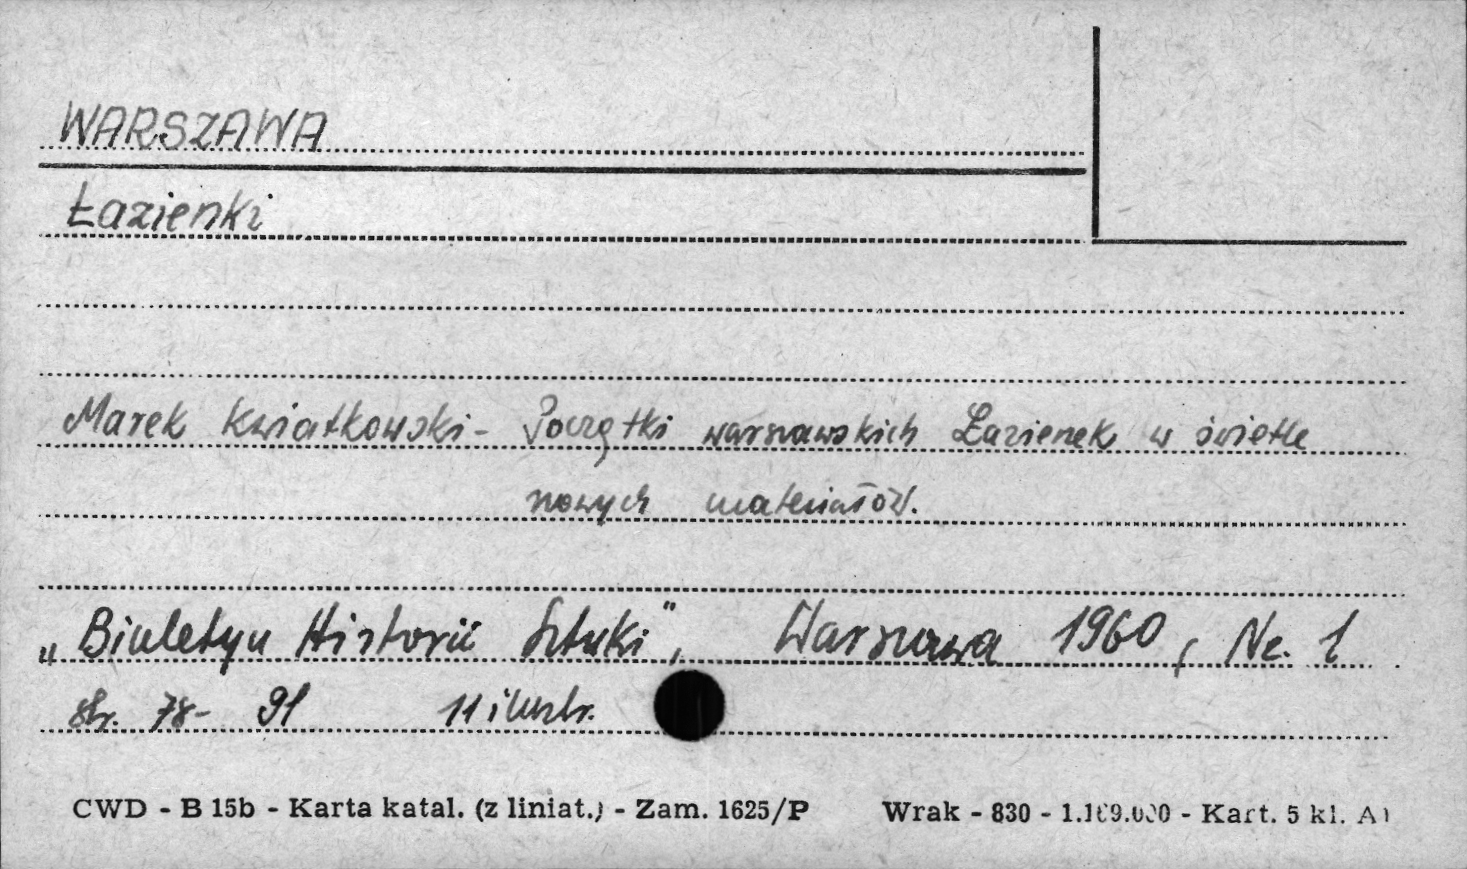 WARSZAWA
Łazienki
Marek Kwiatkowski - Początki warszawskich Łazienek w świetle
nowych materiałów.
„Biuletyn Historii Sztuki", Warszawa 1960, Nr. 1
str. 78- 91 11 ilustr.
CWD - B 15b - Karta katal. (z liniat.) - Zam. 1625/P Wrak - 830 - - Kart. 5 kl. A